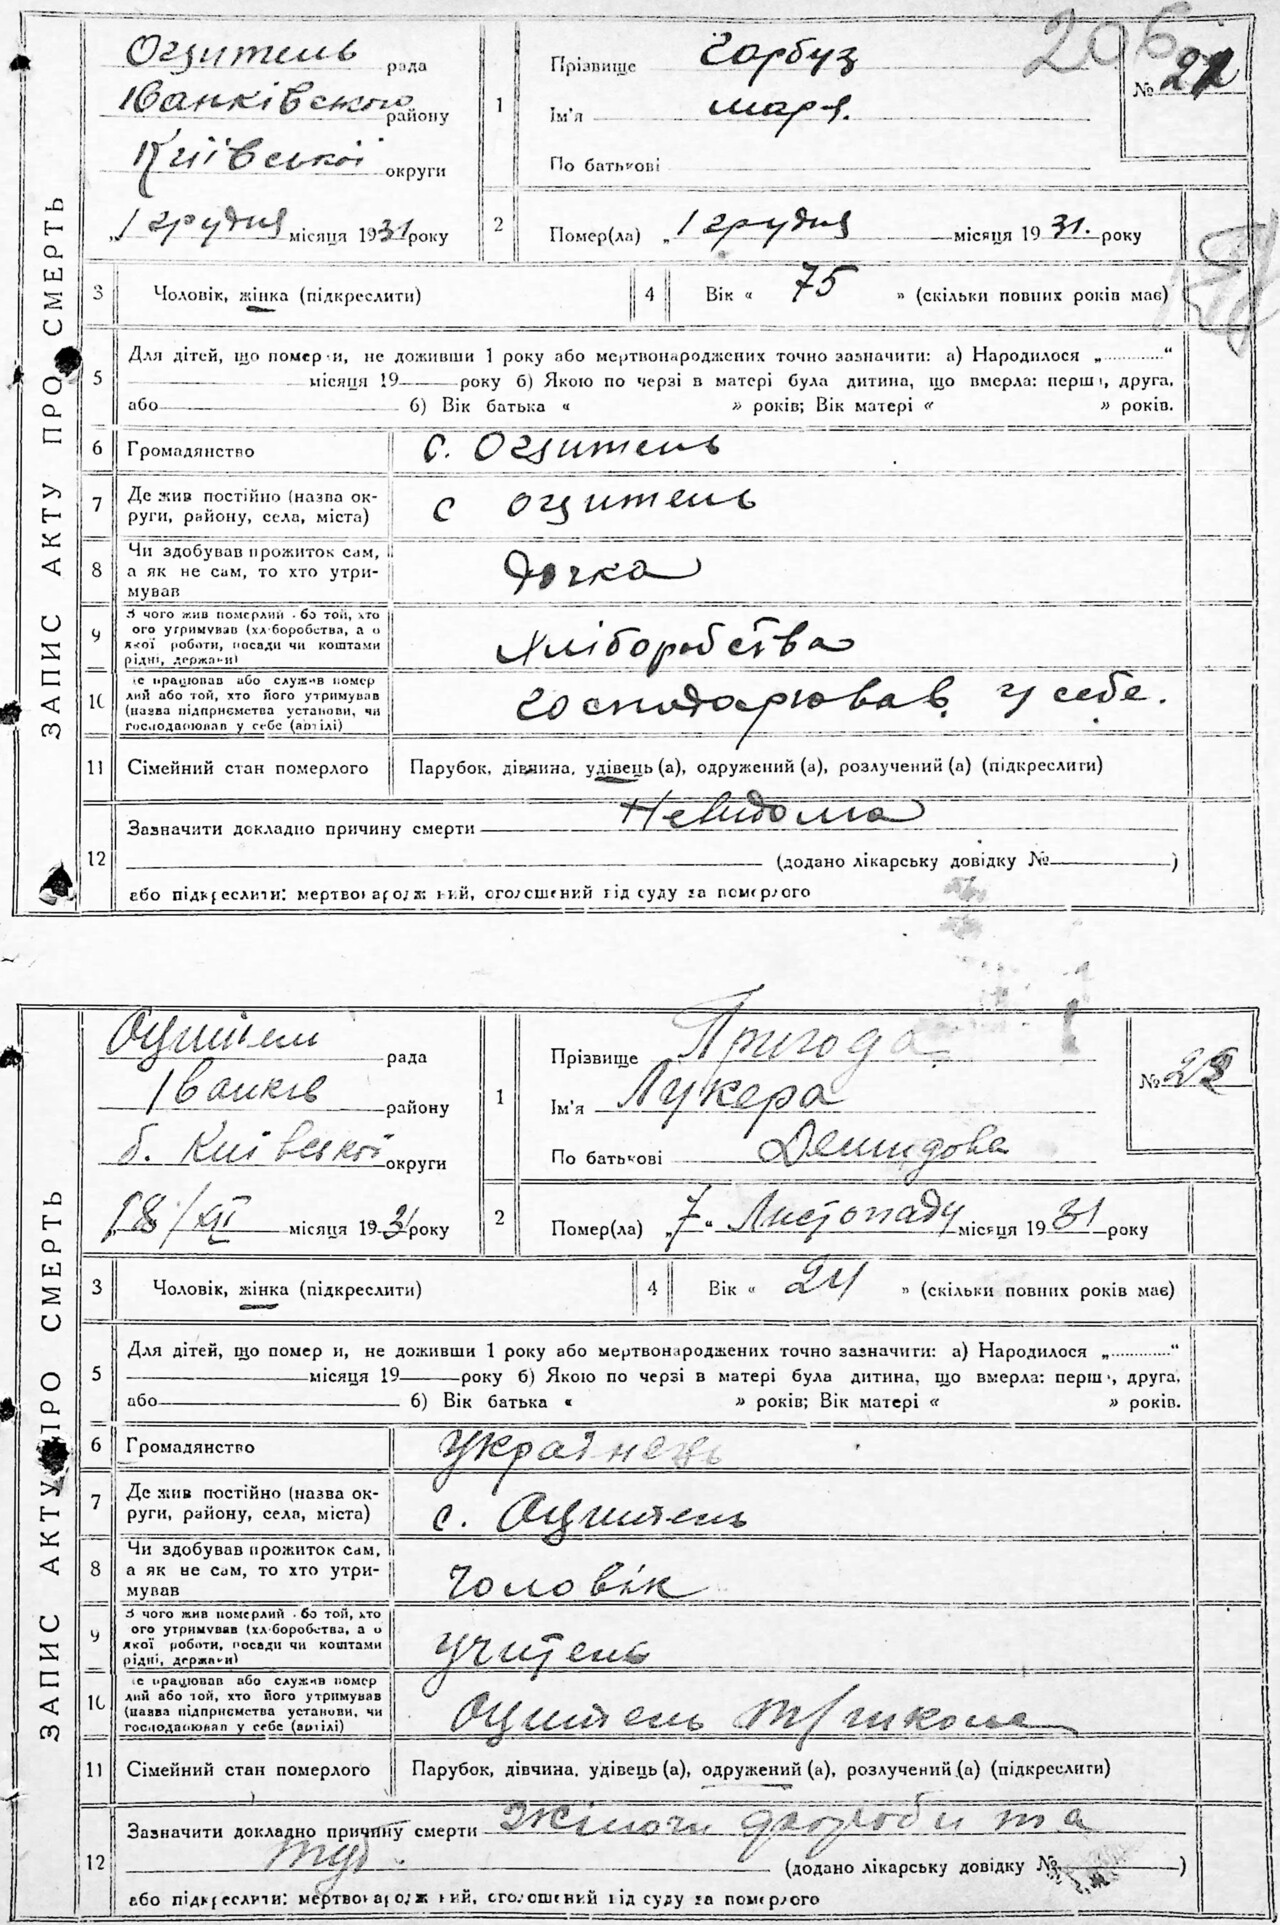 206
ЗАПИС АКТУ ПРО СМЕРТЬ
Оцитель рада
Іванківського району
Київської округи
„1 грудня місяця 1931 року
1 Прізвище Гарбуз
Ім'я Мар'я.
По батькові
№ 21
2 Помер(ла) „1 грудня місяця 1931. року
3 Чоловік, жінка (підкреслити)
4 Вік « 75 » (скільки повних років має)
5 Для дітей, що помер и, не доживши 1 року або мертвонароджених точно зазначити: а) Народилося „............“
місяця 19 року б) Якою по черзі в матері була дитина, що вмерла: перш , друга,
або б) Вік батька « » років; Вік матері « » років.
6 Громадянство с. Оцитель
7 Де жив постійно (назва ок-
руги, району, села, міста) с оцитель
8 Чи здобував прожиток сам,
а як не сам, то хто утри-
мував Дочка
9 З чого жив померлий бо той, хто
ого утримував (хл боробства, а о
якої роботи, посади чи коштами
рідні, держави) Хліборобства
10 е працював або служив помер
лий або той, хто його утримував
(назва підприємства установи, чи
господарював у себе (артілі) господарював у себе.
11 Сімейний стан померлого Парубок, дівчина, удівець (а), одружений (а), розлучений (а) (підкреслити)
12 Зазначити докладно причину смерти Невидома
(додано лікарську довідку № )
або підкреслити: мертвонародж ний, оголошений від суду за померлого
ЗАПИС АКТУ ПРО СМЕРТЬ
Оцитель рада
Іванків району
б. Київської округи
„18/XII місяця 1931 року
1 Прізвище Пригода
Ім'я Лукера
По батькові Демидова
№ 22
2 Помер(ла) „7" Листопаду місяця 1931 року
3 Чоловік, жінка (підкреслити)
4 Вік « 24 » (скільки повних років має)
5 Для дітей, що помер и, не доживши 1 року або мертвонароджених точно зазначити: а) Народилося „............“
місяця 19 року б) Якою по черзі в матері була дитина, що вмерла: перш , друга,
або б) Вік батька « » років; Вік матері « » років.
6 Громадянство Українець
7 Де жив постійно (назва ок-
руги, району, села, міста) с. Оцитель
8 Чи здобував прожиток сам,
а як не сам, то хто утри-
мував чоловік
9 З чого жив померлий бо той, хто
ого утримував (хл боробства, а о
якої роботи, посади чи коштами
рідні, держави) учитель
10 е працював або служив помер
лий або той, хто його утримував
(назва підприємства установи, чи
господарював у себе (артілі) Оцитель тр/школа
11 Сімейний стан померлого Парубок, дівчина, удівець (а), одружений (а), розлучений (а) (підкреслити)
12 Зазначити докладно причину смерти Жіночи хороби та
туб.
(додано лікарську довідку № )
або підкреслити: мертвонародж ний, оголошений від суду за померлого